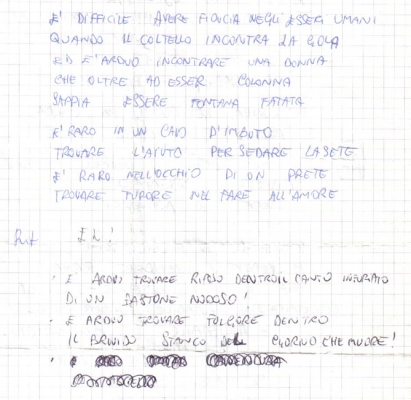 E' DIFFICILE AVERE FIDUCIA NEGLI ESSERI UMANI
QUANDO IL COLTELLO INCONTRA LA GOLA
ED E' ARDUO INCONTRARE UNA DONNA
CHE OLTRE AD ESSER COLONNA
SAPPIA ESSERE FONTANA FATATA
E' RARO IN UN CAVO D'IMBUTO
TROVARE L'AIUTO PER SEDARE LA SETE
E' RARO NELL'OCCHIO DI UN PRETE
TROVARE NEL FARE ALL'AMORE
Rit EL!
E' ARDUO TROVARE RIPOSO DENTRO IL CANTO
DI UN BASTONE NODOSO!
E ARDUO TROVARE FULGORE DENTRO
IL STANCO GIORNO CHE MUORE!